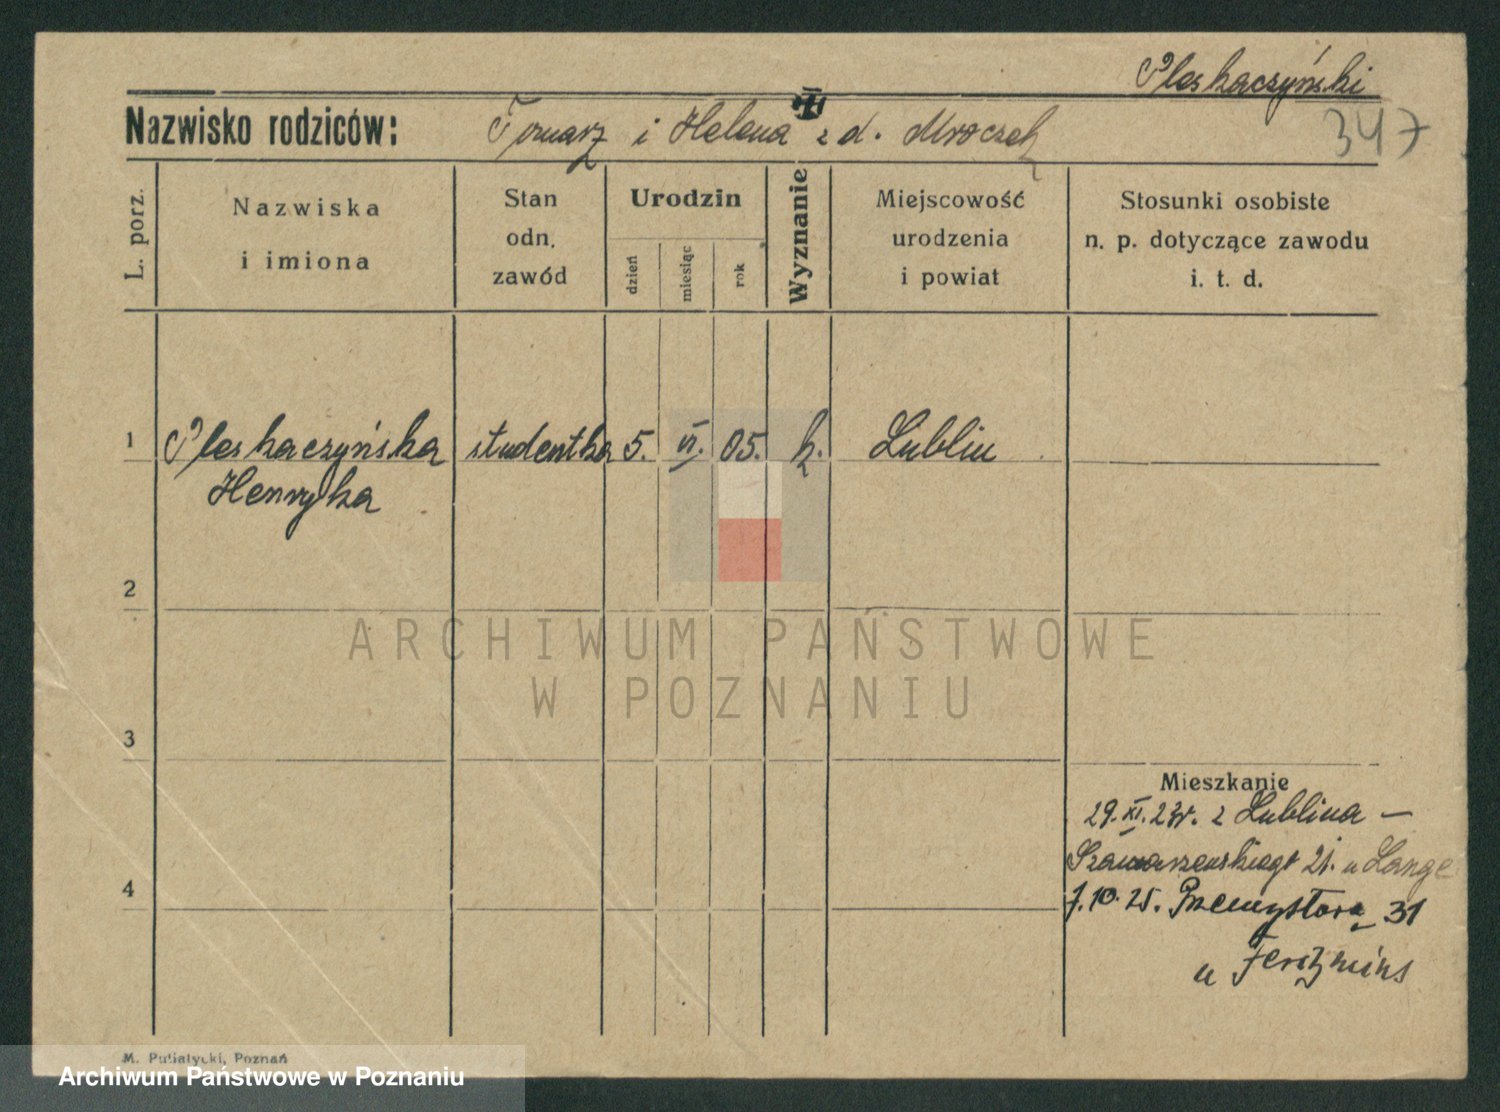 Pleskaczyński
Nazwisko rodziców: Tomasz i Helena z d. Mroczek
347
L. porz.
Nazwiska
i imiona
Stan
odn.
zawód
Urodzin
dzień
miesiąc
rok
Wyznanie
Miejscowość
urodzenia
i powiat
Stosunki osobiste
n. p. dotyczące zawodu
i. t. d.
1 Pleskaczyńska studentka 5. VI. 05. k. Lublin
Henryka
2
ARCHIWUM PAŃSTWOWE
W POZNANIU
3
Mieszkanie
29.XI.23r. z Lublina —
Szamarzewskiego 21. u Lange
4
7.10.25. Przemysłowa 31
u
M. Putiatycki, Poznań
Archiwum Państwowe w Poznaniu